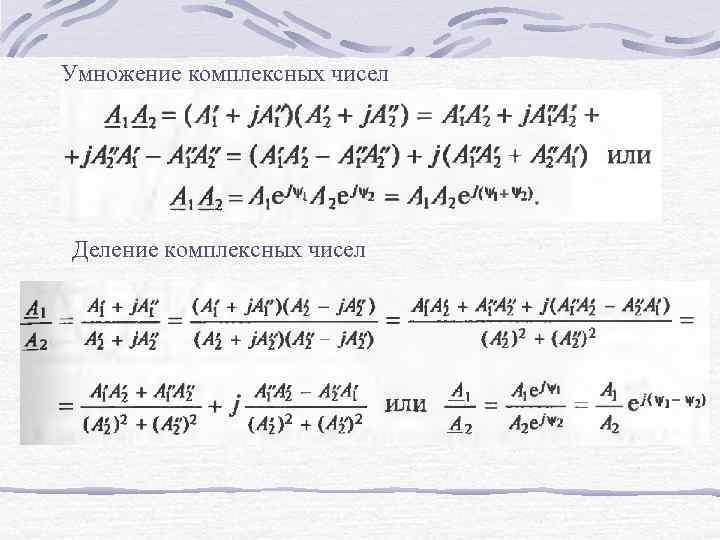 Умножение комплексных чисел
A̲₁A̲₂ = (A′₁ + jA″₁)(A′₂ + jA″₂) = A′₁A′₂ + jA″₁A′₂ +
+jA″₂A′₁ − A″₁A″₂ = (A′₁A′₂ − A″₁A″₂) + j(A″₁A′₂ + A″₂A′₁) или
A̲₁A̲₂ = A₁e^{jψ₁}A₂e^{jψ₂} = A₁A₂e^{j(ψ₁+ψ₂)}.
Деление комплексных чисел
A̲₁/A̲₂ = (A′₁ + jA″₁)/(A′₂ + jA″₂) = (A′₁ + jA″₁)(A′₂ − jA″₂)/(A′₂ + jA″₂)(A′₂ − jA″₂) = (A′₁A′₂ + A″₁A″₂ + j(A″₁A′₂ − A″₂A′₁))/((A′₂)² + (A″₂)²) =
= (A′₁A′₂ + A″₁A″₂)/((A′₂)² + (A″₂)²) + j (A″₁A′₂ − A″₂A′₁)/((A′₂)² + (A″₂)²) или A̲₁/A̲₂ = A₁e^{jψ₁}/A₂e^{jψ₂} = A₁/A₂ e^{j(ψ₁−ψ₂)}